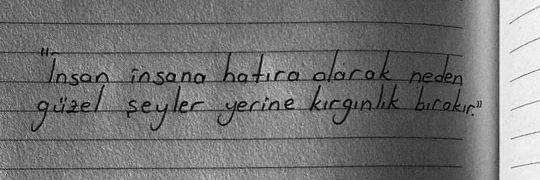 "İnsan insana hatıra olarak neden
güzel şeyler yerine kırgınlık bırakır."